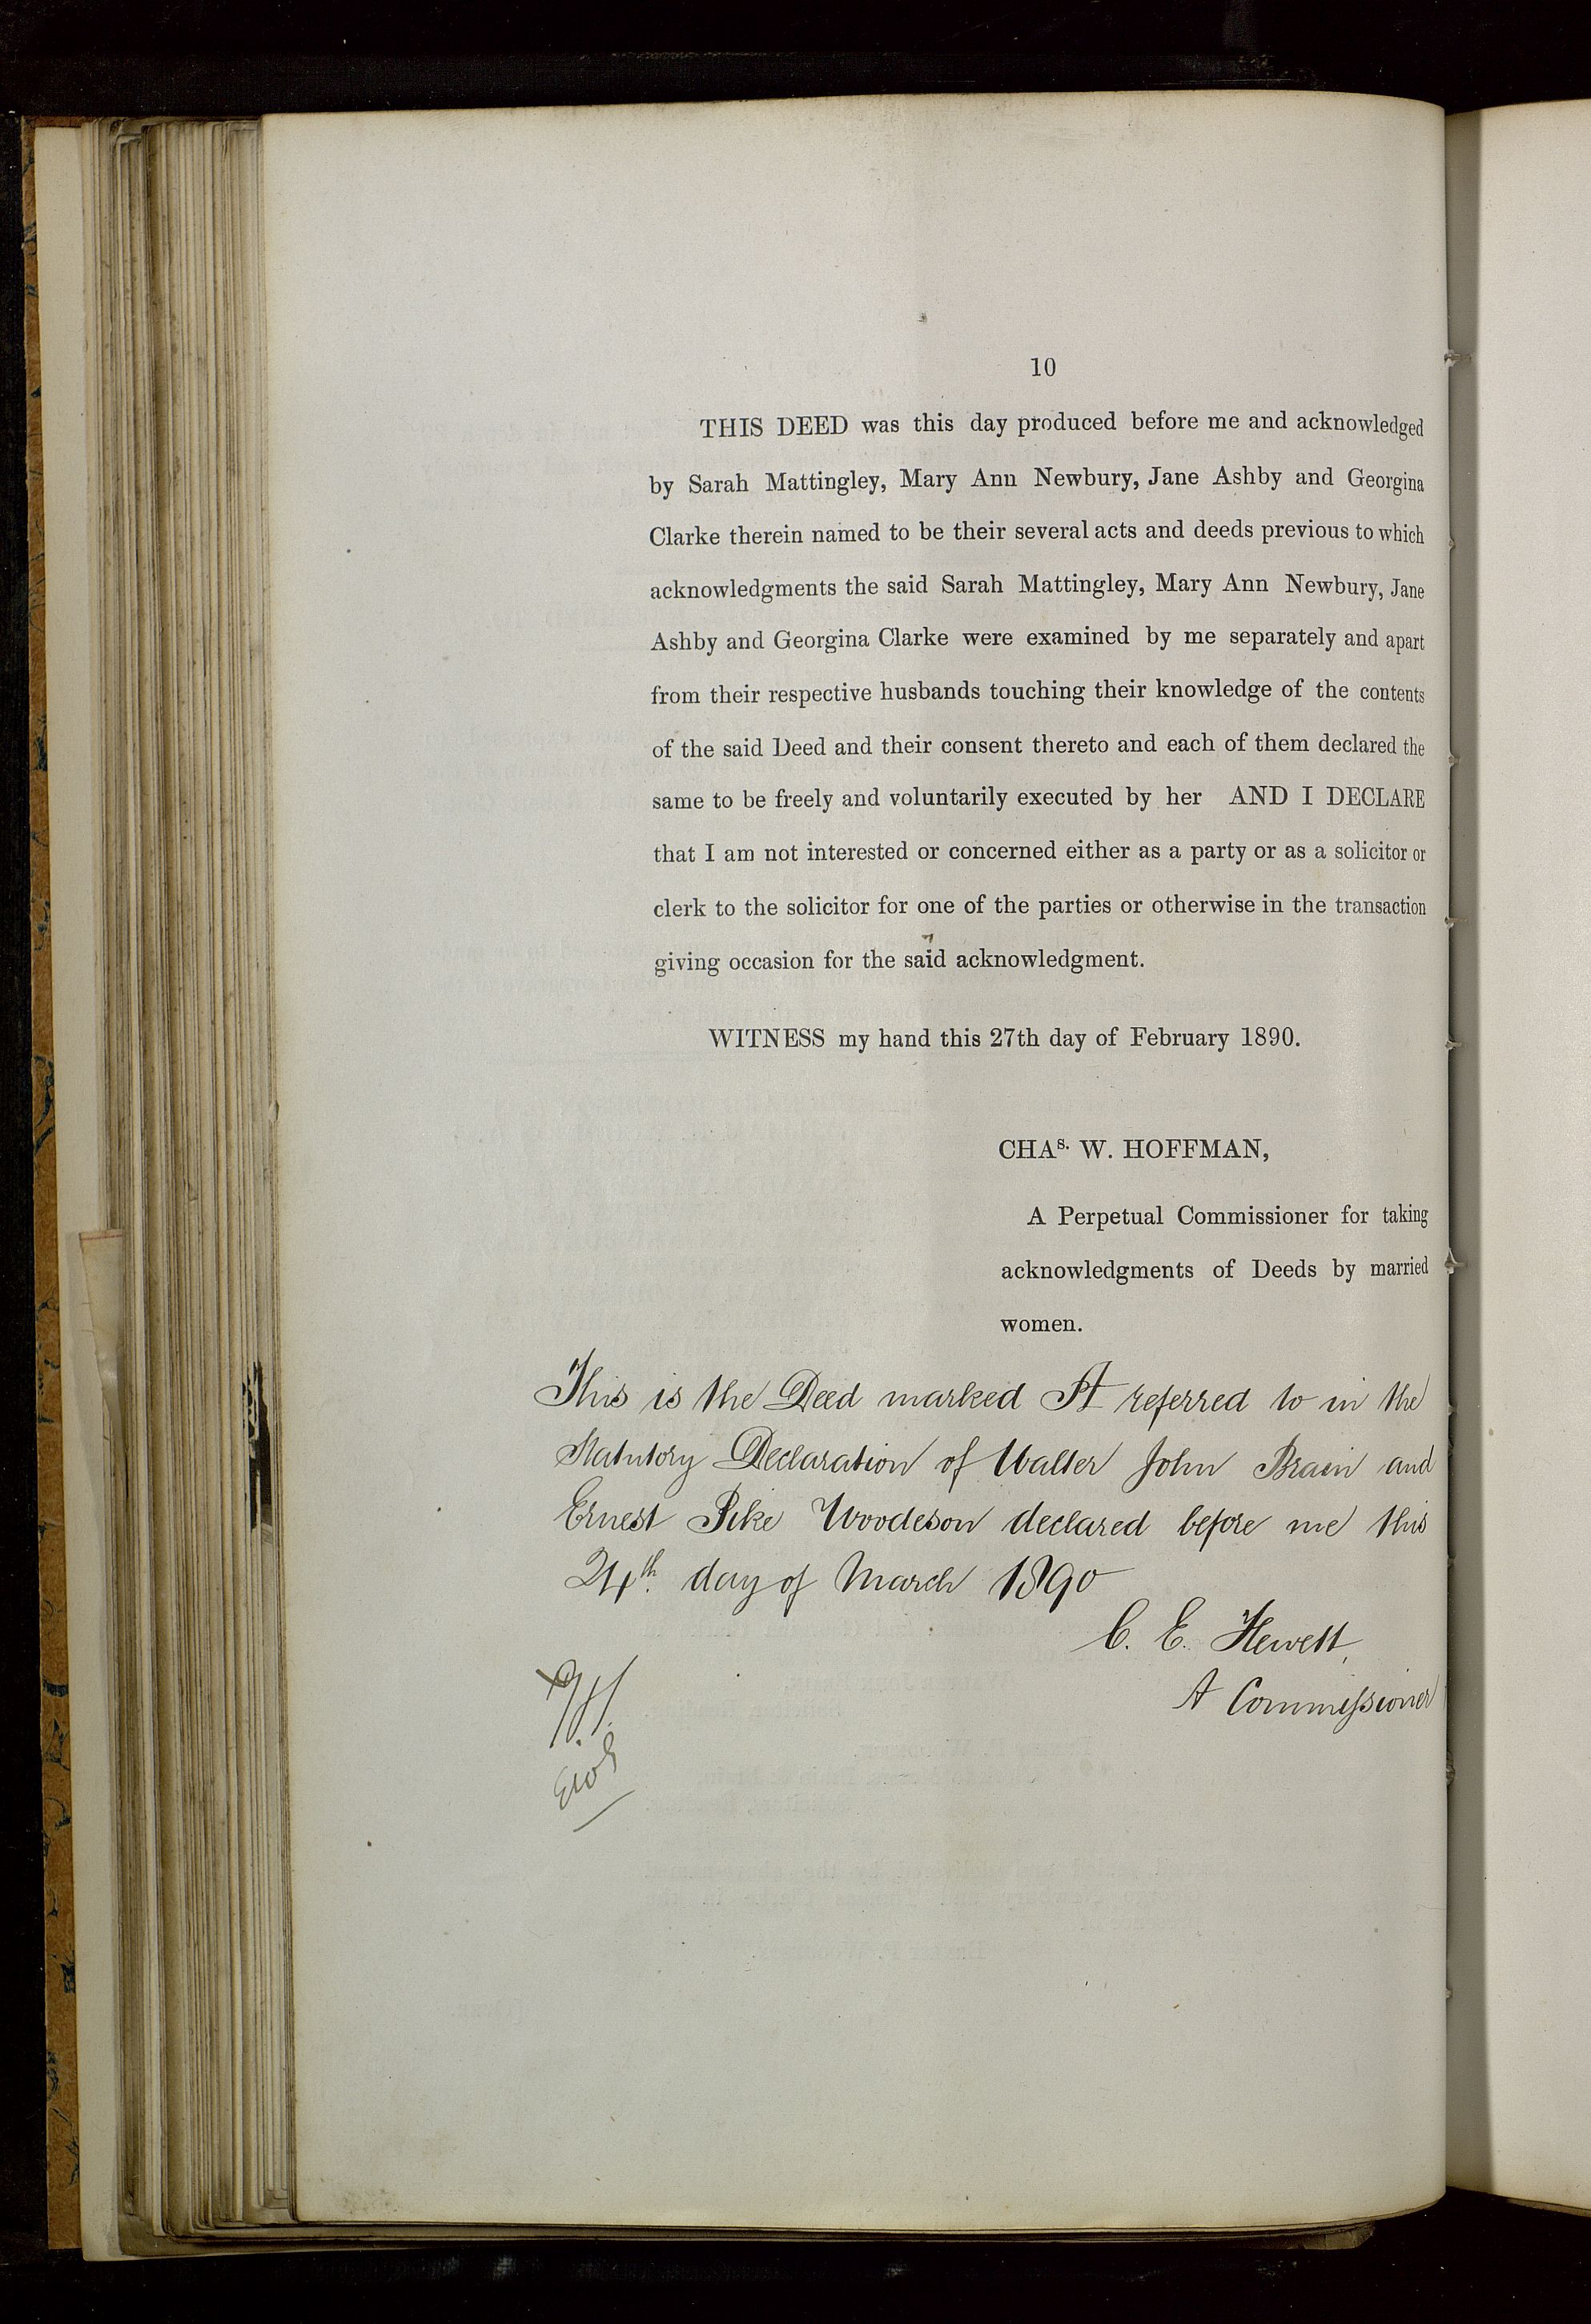 10
THIS DEED was this day produced before me and acknowledged
by Sarah Mattingley, Mary Ann Newbury, Jane Ashby and Georgina
Clarke therein named to be their several acts and deeds previous to which
acknowledgments the said Sarah Mattingley, Mary Ann Newbury, Jane
Ashby and Georgina Clarke were examined by me separately and apart
from their respective husbands touching their knowledge of the contents
of the said Deed and their consent thereto and each of them declared the
same to be freely and voluntarily executed by her AND I DECLARE
that I am not interested or concerned either as a party or as a solicitor or
clerk to the solicitor for one of the parties or otherwise in the transaction
giving occasion for the said acknowledgment.
WITNESS my hand this 27th day of February 1890.
CHAˢ· W. HOFFMAN,
A Perpetual Commissioner for taking
acknowledgments of Deeds by married
women.
This is the Deed marked A referred to in the
Statutory Declaration of Walter John Brain and
Ernest Pike Woodeson declared before me this
24th. day of March 1890
C. E. Hewett,
A Commissioner